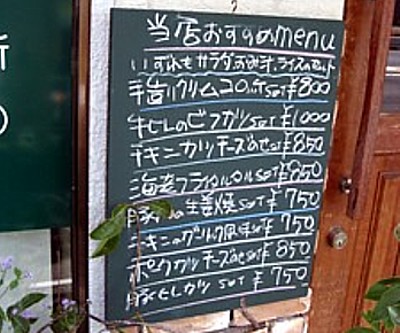 当店おすすめmenu
いずれもサラダ、おみ汁、ライスのセット
手造りクリームコロッケSET ¥800
牛ヒレのビフカツSET ¥1000
チキンカツチーズのせSET ¥850
海老フライタルタルSET ¥850
豚の生姜焼SET ¥750
チキンのグリル風味SET ¥750
ポークカツチーズのせSET ¥850
豚ヒレカツSET ¥750
所